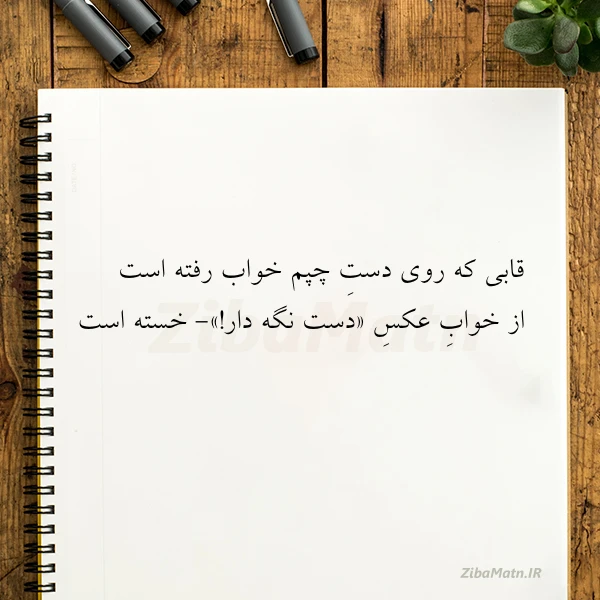 قابی که روی دستِ چپم خواب رفته است
از خوابِ عکسِ «دست نگه دار!»- خسته است
ZibaMatn
ZibaMatn.IR